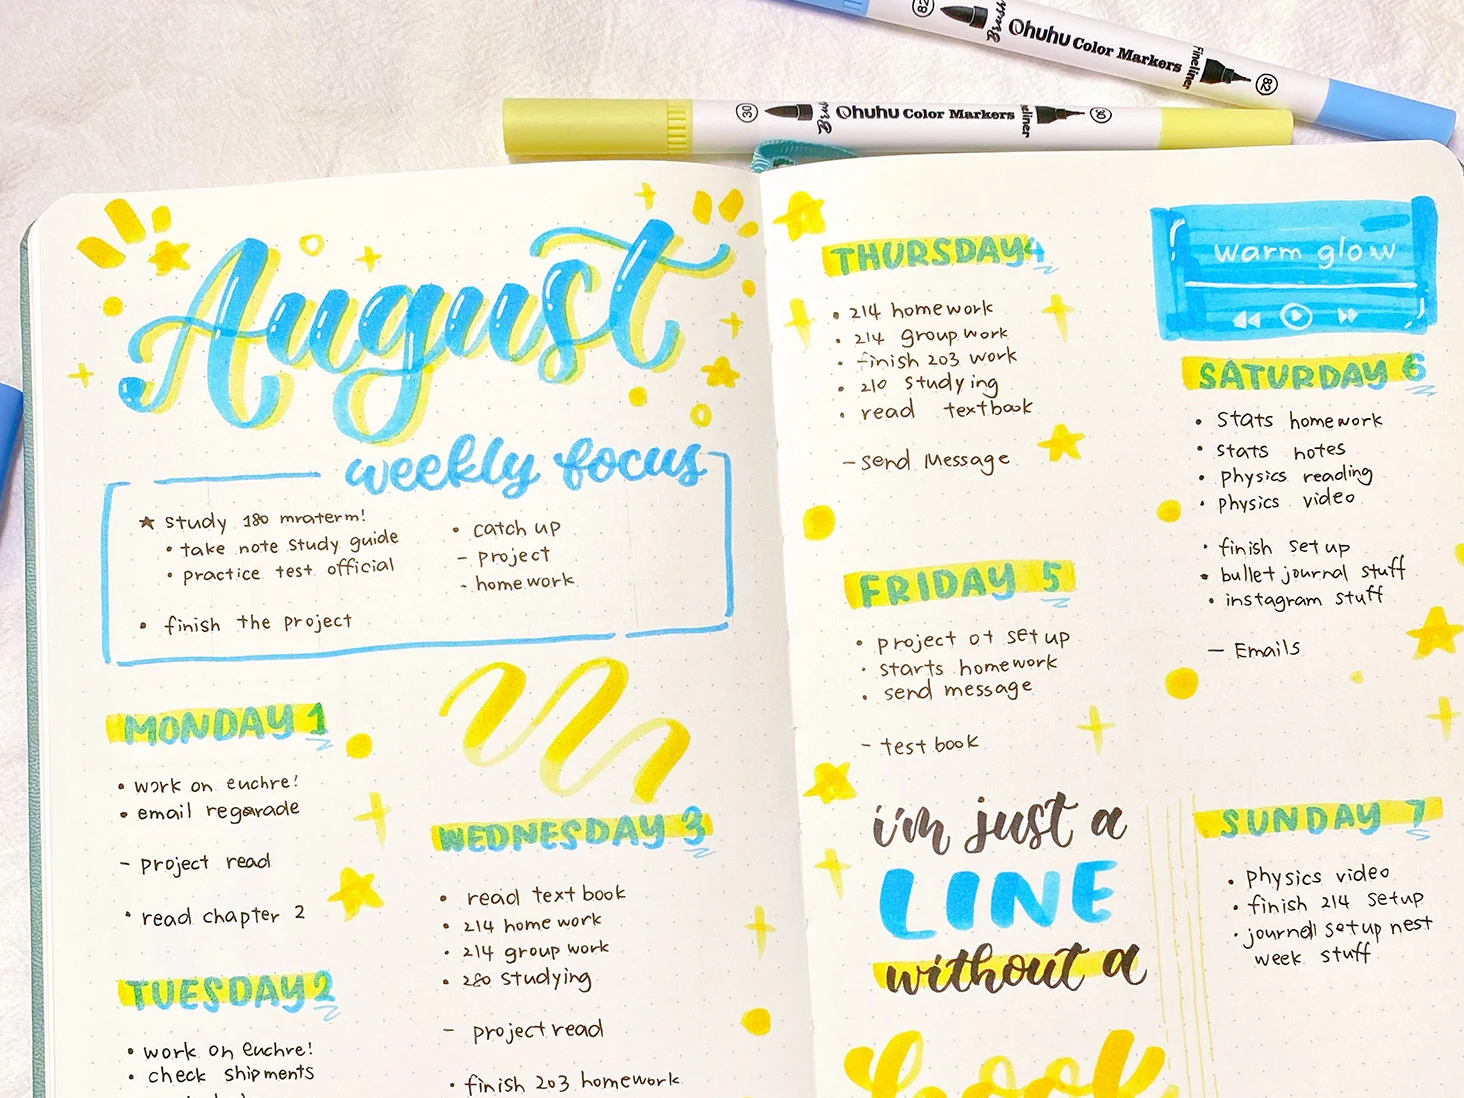 82 Brush Ohuhu Color Markers Fineliner 82
30 Brush Ohuhu Color Markers Fineliner 30
August
weekly focus
★ study 180 mraterm!
• take note study guide
• practice test official
• finish the project
• catch up
- project
- homework
MONDAY 1
• work on euchre!
• email regarade
- project read
• read chapter 2
TUESDAY 2
• work on euchre!
• check shipments
WEDNESDAY 3
• read textbook
• 214 homework
• 214 group work
• 280 studying
- project read
• finish 203 homework
THURSDAY 4
• 214 homework
• 214 group work
• finish 203 work
• 210 studying
• read textbook
- send Message
FRIDAY 5
• project ot set up
• starts homework
• send message
- testbook
i'm just a
LINE
without a
hook
warm glow
SATURDAY 6
• Stats homework
• stats notes
• physics reading
• physics video
• finish set up
• bullet journal stuff
• instagram stuff
- Emails
SUNDAY 7
• physics video
• finish 214 setup
• journal setup nest
week stuff